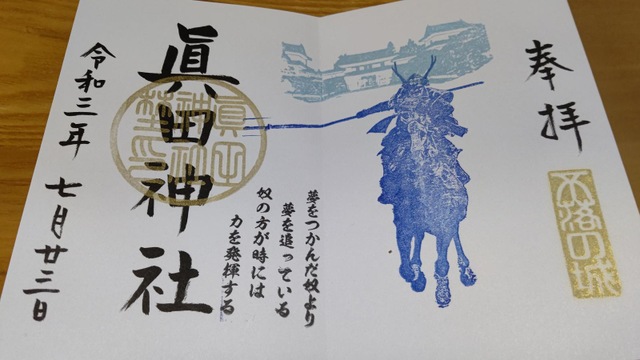 奉拝
不落の城
夢をつかんだ奴より
夢を追っている
奴の方が時には
力を発揮する
眞田神社
令和三年 七月廿三日